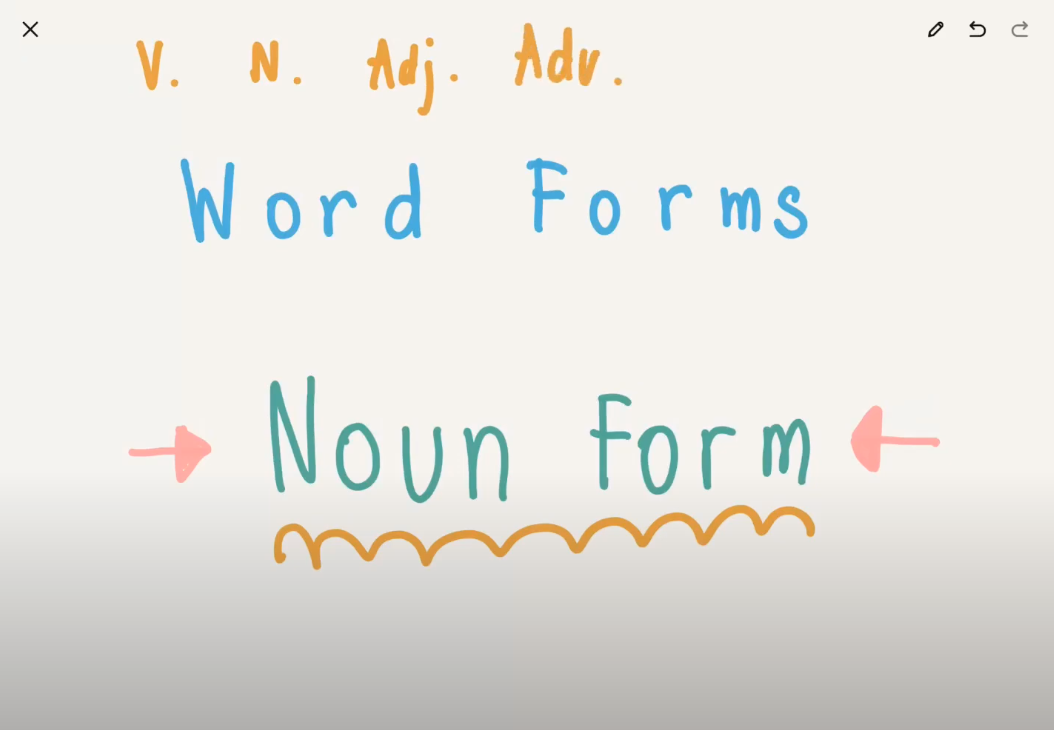 V. N. Adj. Adv.
Word Forms
Noun Form